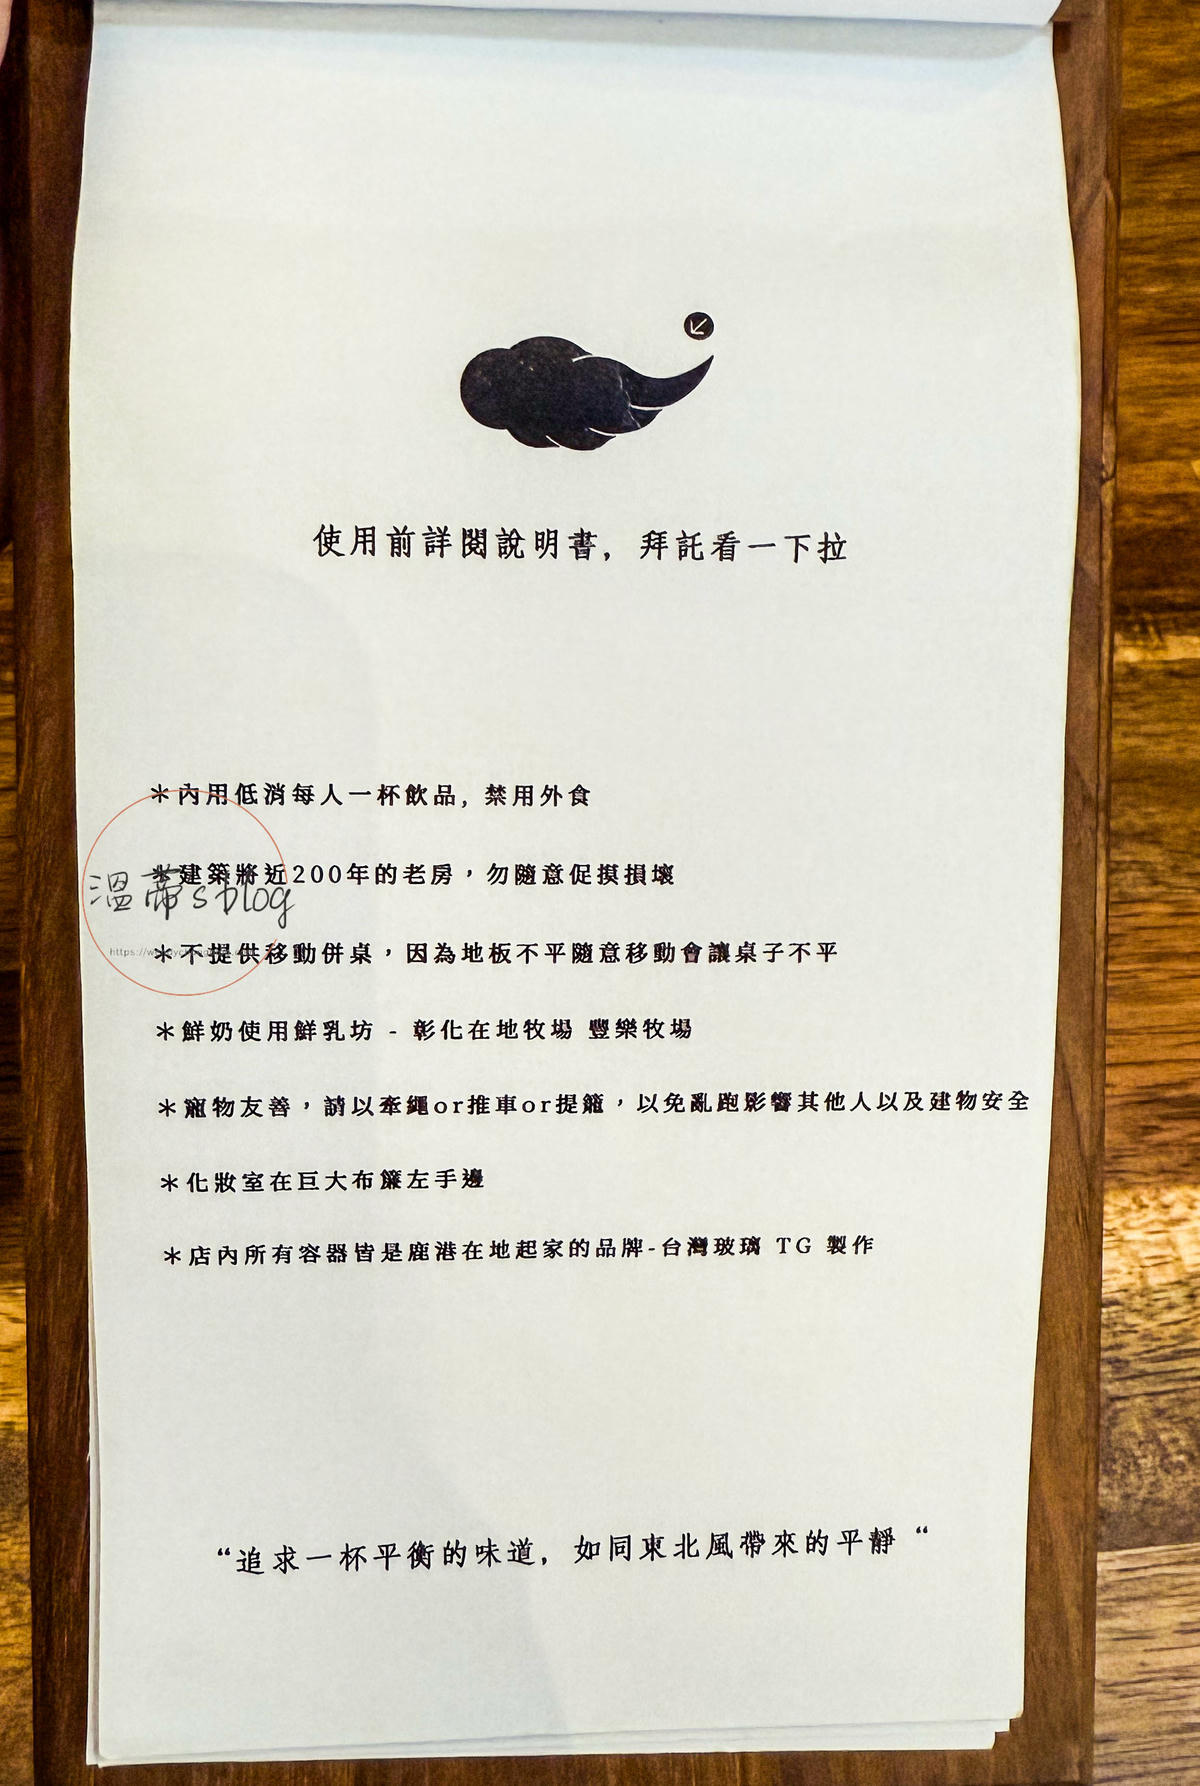 使用前詳閱說明書，拜託看一下拉
＊內用低消每人一杯飲品，禁用外食
＊建築將近200年的老房，勿隨意促摸損壞
溫蒂's blog
＊不提供移動併桌，因為地板不平隨意移動會讓桌子不平
＊鮮奶使用鮮乳坊 - 彰化在地牧場 豐樂牧場
＊寵物友善，請以牽繩or推車or提籠，以免亂跑影響其他人以及建物安全
＊化妝室在巨大布簾左手邊
＊店內所有容器皆是鹿港在地起家的品牌-台灣玻璃 TG 製作
“追求一杯平衡的味道，如同東北風帶來的平靜 “